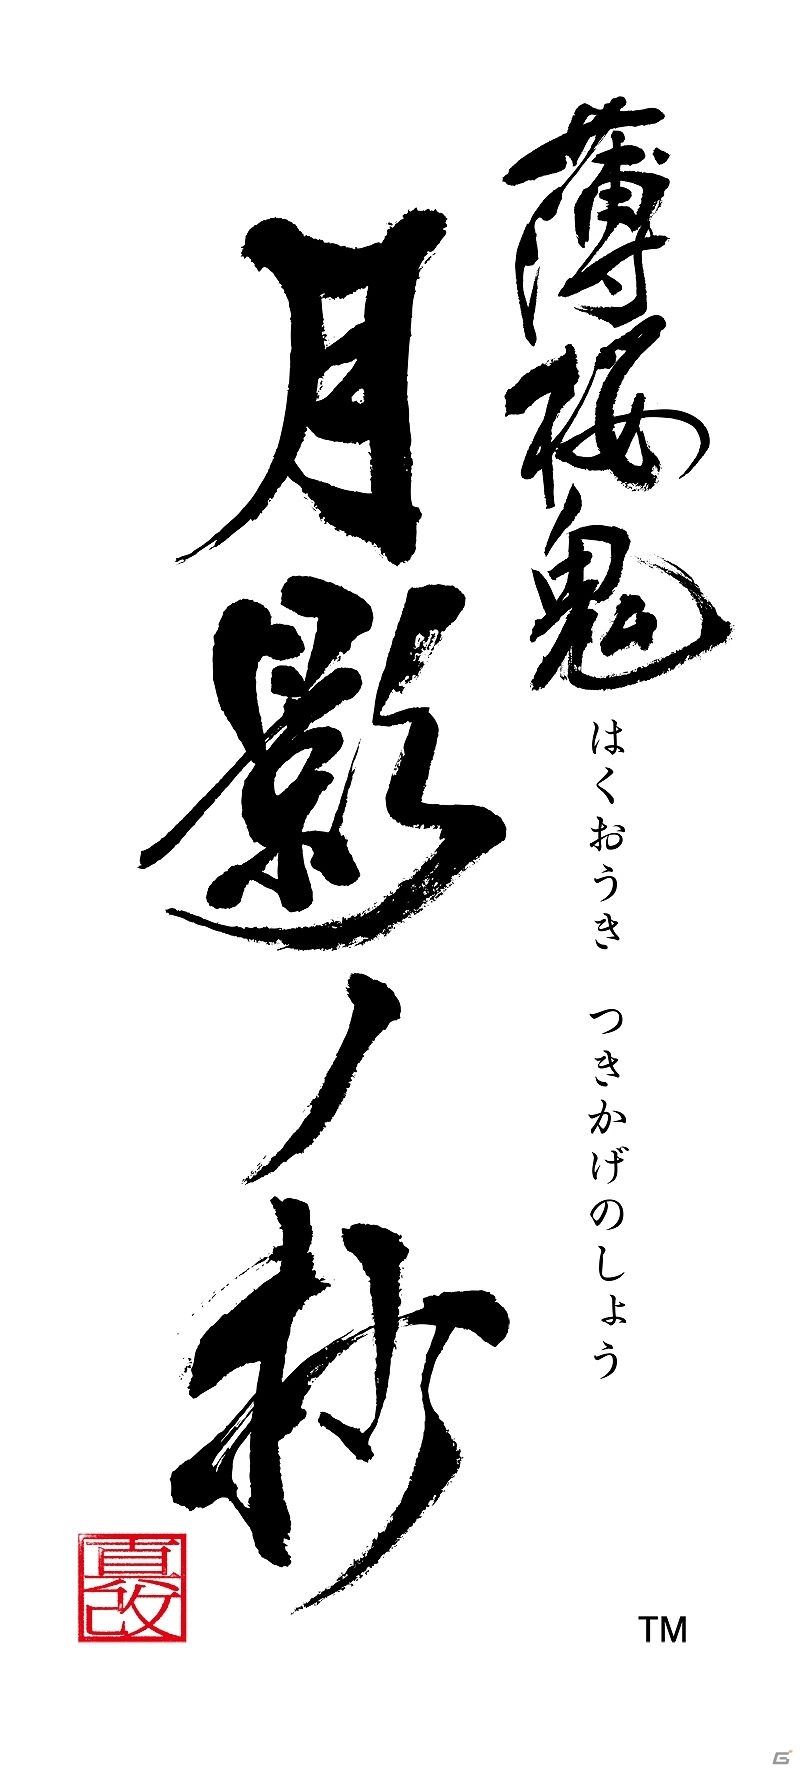 薄桜鬼
はくおうき つきかげのしょう
月影ノ抄
真改
TM
G